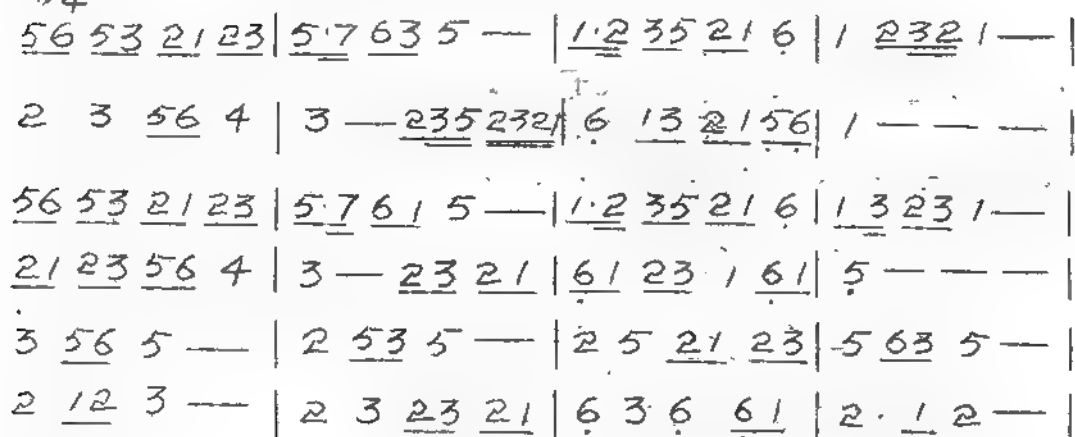 56 53 21 23 | 5·7 63 5 — | 1·2 35 21 6̣ | 1 232 1 — |
2 3 56 4 | 3 — 235 2321 | 6̣ 13 21 5̣6̣ | 1 — — — |
56 53 21 23 | 5·7 61 5 — | 1·2 35 21 6̣ | 1 3 23 1 — |
21 23 56 4 | 3 — 23 21 | 6̣1 23 1 6̣1 | 5̣ — — — |
3 56 5 — | 2 53 5 — | 2 5 21 23 | 5 63 5 — |
2 12 3 — | 2 3 23 21 | 6̣ 3 6̣ 6̣1 | 2 · 1 2 — |